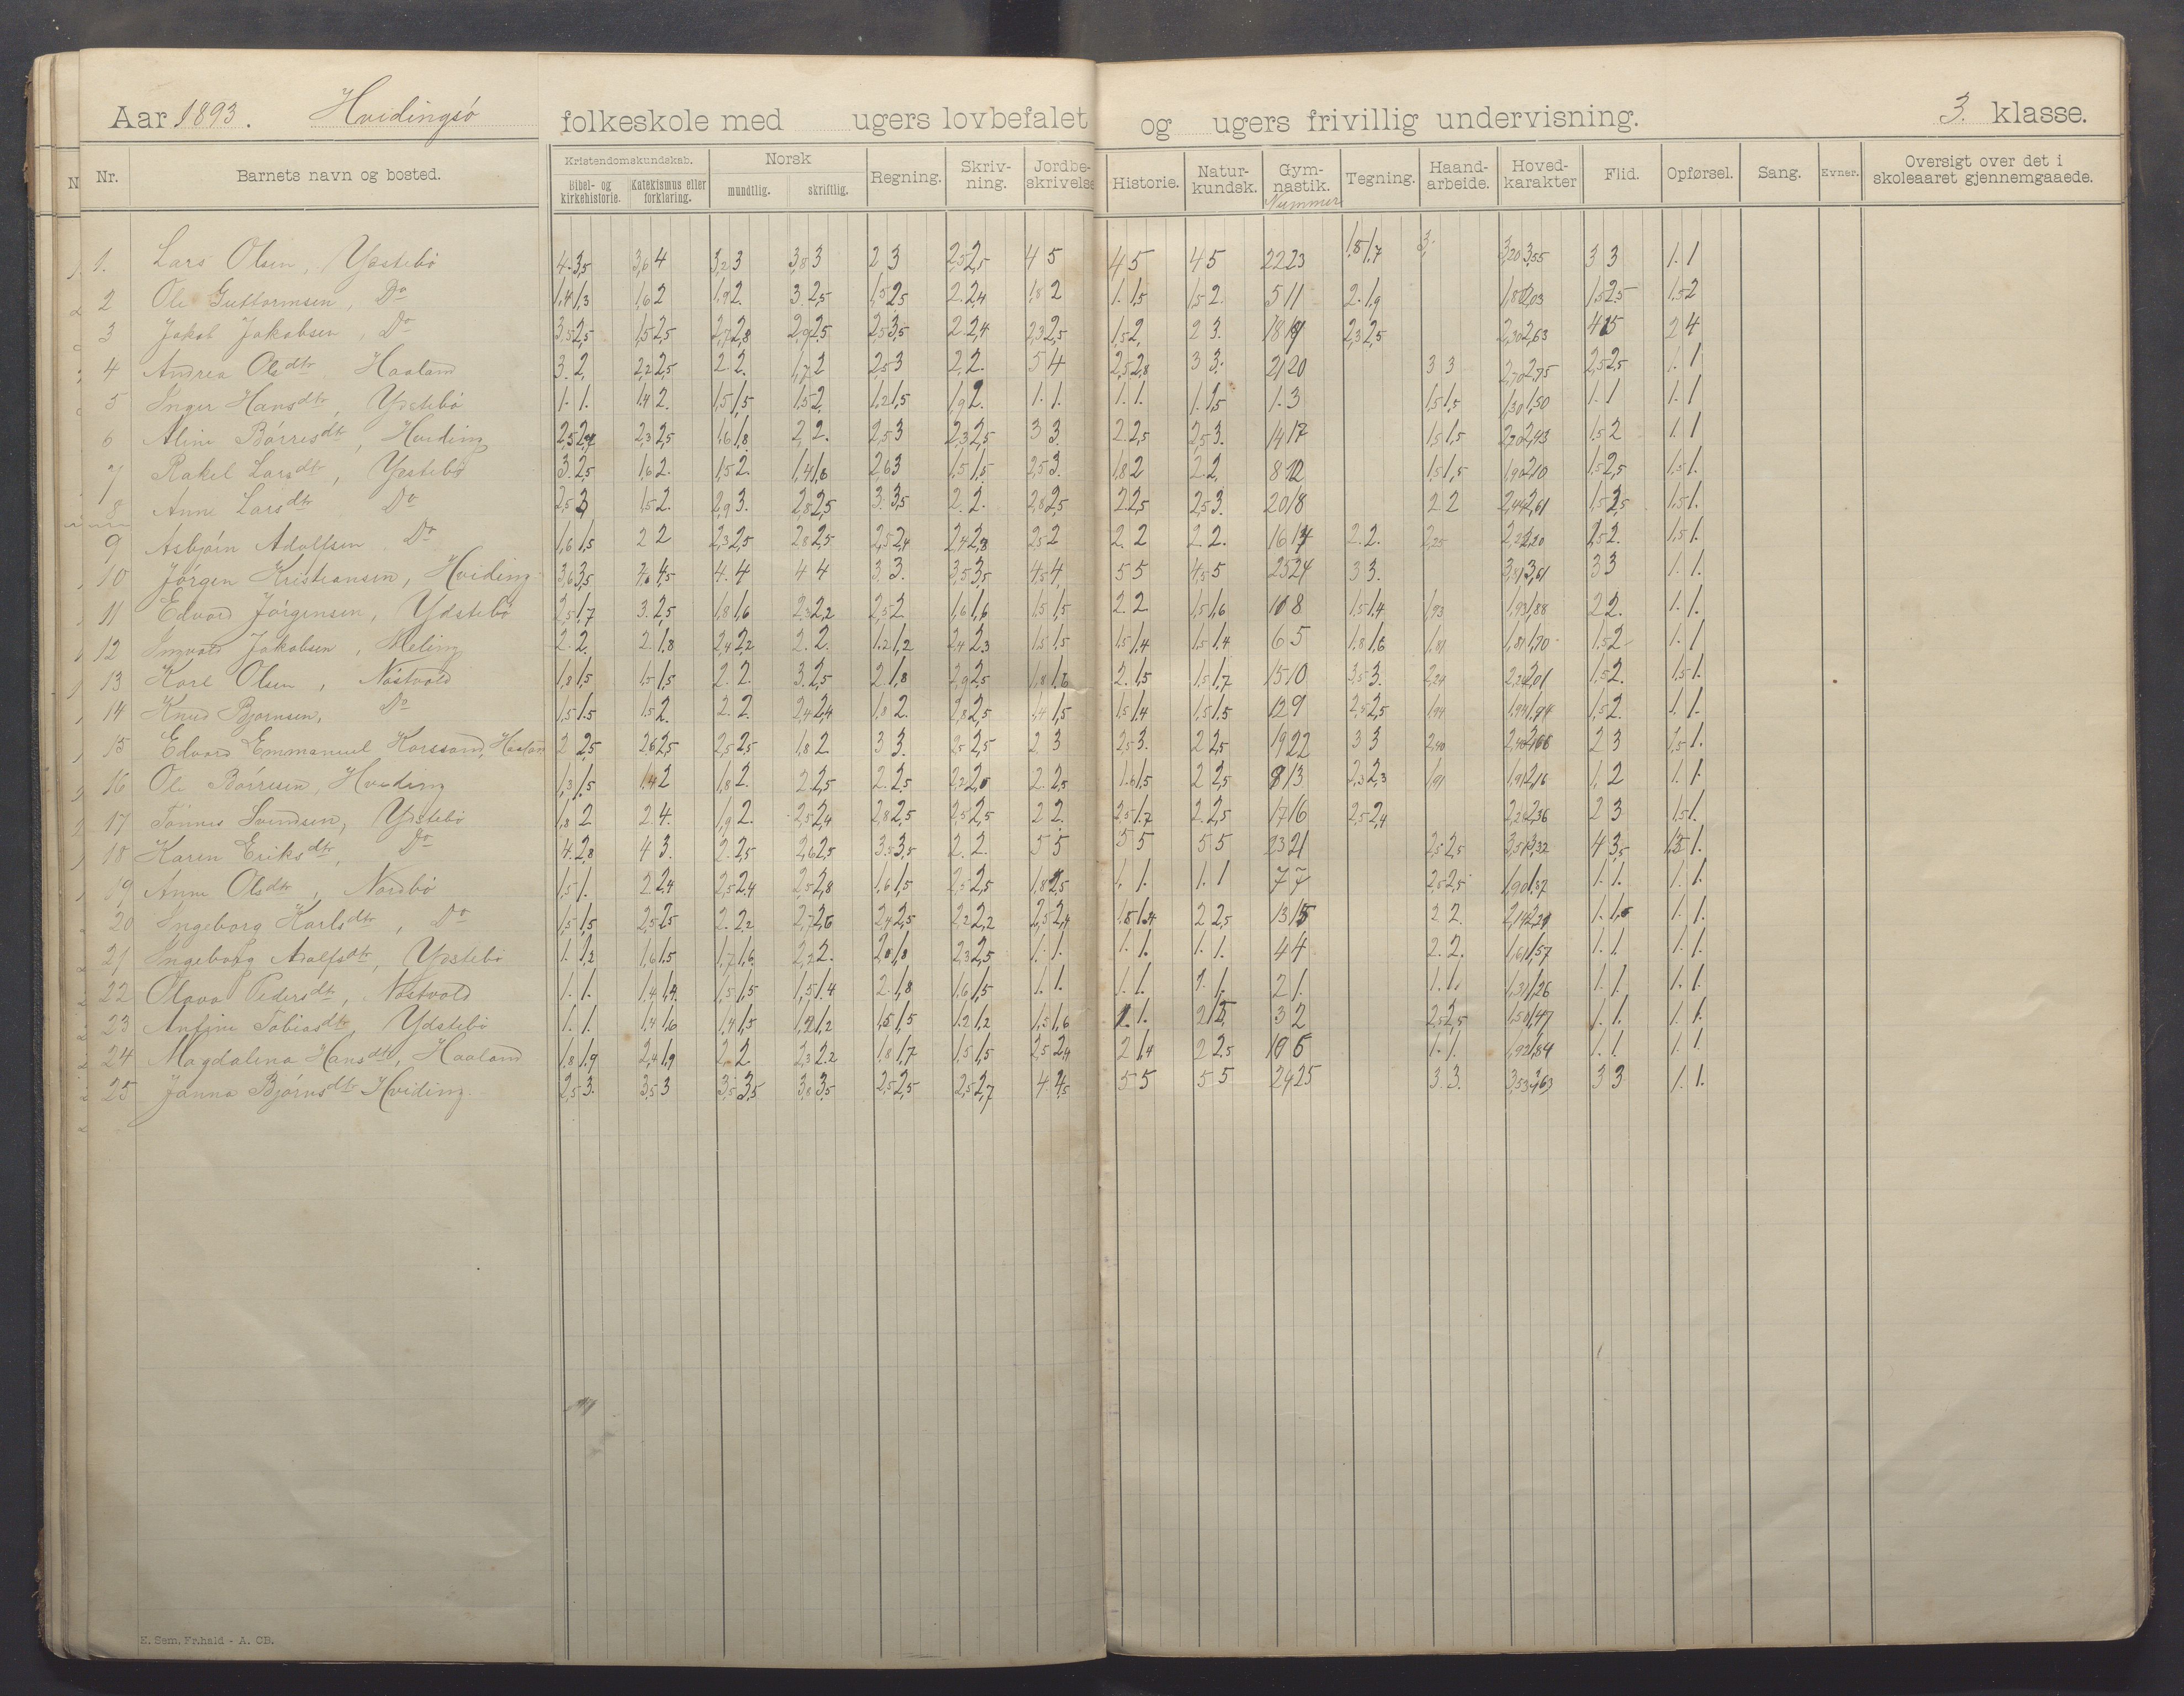 Aar 1893. Hvidingsö folkeskole med ugers lovbefalet og ugers frivillig undervisning. 3. klasse.
Nr. Barnets navn og bosted. Kristendomskundskab. Norsk Regning. Skriv-ning. Jordbe-skrivelse Historie. Natur-kundsk. Gym-nastik. Tegning. Haand-arbeide. Hoved-karakter Flid. Opførsel. Sang. Evner. Oversigt over det i skoleaaret gjennemgaaede.
Bibel- og kirkehistorie. Katekismus eller forklaring. mundtlig. skriftlig. Nummer
1. Lars Olsen, Ydstebö 4 3,5 3,6 4 3,2 3 3,8 3 2 3 2,5 2,5 4 5 4 5 4 5 22 23 1,8 1,7 3. 3,20 3,55 3 3 1. 1
2 Ole Guttormsen, Do 1,4 1,3 1,6 2 1,9 2. 3. 2,5 1,5 2,5 2. 2,4 1,8 2 1. 1,5 1,5 2. 5 11 2. 1,9 1,5 2,5 1,5 2
3 Jakob Jakobsen, Do 3,5 2,5 1,5 2,5 2,7 2,8 2,9 2,5 2,5 3,5 2. 2,4 2,3 2,5 1,5 2, 2 3. 2,3 2,5 2,30 2,63 2 4
4 Andrea Olsdtr Haaland 3. 2, 2,2 2,5 2. 2. 1,7 2 2,5 3 2,2. 5 4 2,5 2,8 3 3. 21 20 3 3 2,70 2,75 2,5 2,5 1. 1
5 Inger Hansdtr, Ydstebö 1. 1. 1,4 2. 1,5 1,5 1,5 2 1,2 1,5 1,9 2. 1. 1. 1. 1. 1. 1,5 1. 3 1,5 1,5 1,30 1,50 1. 1 1. 1
6 Aline Börresdtr, Hviding 2,3 2,5 1,6 1,8 2,2. 2,5 3 2,3 2,5 3 3. 2. 2,5 2,5 3. 14 17 1,5 1,5 1,5 2 1. 1
7 Rakel Larsdtr, Ydstebö 3. 2,5 1,6 2. 1,5 2. 1,4 1,6 2,6 3 1,5 1,5 2,5 3. 1,8 2 2. 2 1,5 1,5 1,90 2,10 1,5 2,5 1,5 1.
8. Anne Larsdtr Do 2,5 3 1,5 2. 2,9 3. 2,8 2,5 3. 3,5 2. 2. 2,8 2,5 2 2,5 2,5 3. 20 18 2 2 2,44 2,61 1,5 2,5 1,5 1.
9 Asbjörn Adolfsen Do 1,6 1,5 2 2 2,3 2,5 2,8 2,5 2,5 2,4 2,4 2,3 2,5 2 2. 2 2 2. 2. 2. 2,25 1,5 2. 1,5 1.
10 Jörgen Kristiansen, Hviding 3,6 3,5 4. 4 4 4 3. 3. 3,5 3,5 4,5 4, 5 5 4,5 5 25 24 3 3. 3,81 3,61 3 3 1. 1.
11 Edvard Jörgensen, Ydstebö 2,5 1,7 3. 2,5 1,8 1,6 2,3 2,2 2,5 2 1,6 1,6 1,5 1,5 2. 2 1,5 1,6 10 8 1,5 1,4 1,93 1,93 1,88 2 2. 1. 1.
12 Ingvald Jakobsen, Meling 2. 2. 2. 1,8 2,4 2,2 2. 2. 1,2 1,2 2,4 2,3 1,5 1,5 1,5 1,4 1,5 1,4 6 5 1,8 1,6 1,81 1,81 1,70 1,5 2 1. 1
13 Karl Olsen, Nåstvold 1,8 1,5 1,5 1,5 2. 2. 3. 2,5 2. 1,8 2,9 2,5 1,8 1,6 2. 1,5 1,5 1,7 15 10 3,5 3. 2,24 2,24 2,01 1,5 2. 1,5 1.
14 Knud Bjornsen, Do 1,5 1,5 1,5 2. 2. 2. 2,4 2,4 1,8 2. 2,8 2,5 1,4 1,5 1,5 1,4 1,5 1,5 12 9 2,5 2,5 1,94 1,94 1,94 1,5 2. 1. 1.
15 Edvard Emmanuel Korssand, Haaland 2 2,5 2,6 2,5 2,5 2,5 1,8 2 3 3. 2,5 2,5 2 3 2,5 3. 2 2,5 19 22 3 3 2,40 2 3 1,5 1.
16 Ole Börresen, Hviding 1,3 1,5 1,4 2 1,8 2. 2 2,5 2. 2,5 2,2 2,0 2. 2,5 1,6 1,5 2 2,5 8 13 2,3 2,3 1,91 1,91 2,16 1, 2 1. 1.
17 Tönnes Svendsen, Ydstebö 1,8 2 2 4. 1,9 2. 2,5 2,4 2,8 2,5 2,5 2,5 2 2. 2,5 1,7 2. 2,5 17 16 2,5 2,4 2,24 2,36 2 3 1,5 1.
18 Karen Eriksdtr, Do 4. 2,8 4 3. 2. 2,5 2,6 2,5 3,5 3,5 2. 2. 5 5 5 5 5 5 23 21 2,5 2,5 3,51 3,32 4 3,5
19 Anne Olsdtr, Nordbö 1,5 1. 2 2,4 2,5 2,4 2,5 2,8 1,6 1,5 2,5 2,5 1,8 2,5 1. 1. 1. 1 7 7 2,5 2,5 1,90 1,87 1. 1. 1. 1.
20 Ingeborg Karlsdtr, Do 1,5 1,5 2,5 2,5 2. 2,2 2,7 2,6 2,4 2,5 2,2 2,2 2,5 2,4 1,5 1,4 2 2,5 13 15 2 2. 1. 1,5 1. 1.
21 Ingeborg Adolfsdtr, Ydstebö 1. 1,2 1,6 1,5 1,7 1,6 2,2 2. 2,0 1,8 2,3 2,5 1. 1. 1. 1. 1. 1. 4 4 2. 2. 1,61 1,57 1. 1. 1. 1.
22 Olava Pedersdtr, Nåstvold 1. 1. 1,4 1,4 1,5 1,5 1,5 1,4 2. 1,8 1,6 1,5 1. 1. 1. 1. 1. 1. 2 1. 1. 1. 1,31 1,26 1. 1. 1. 1.
23 Anfine Tobiasdtr, Ydstebö 1. 1. 1,4 1,6 1,4 1,5 1,2 1,2 1,5 1,5 1,2 1,2 1,5 1,6 1. 1. 2 1,5 3 2 2,5 2,5 1,50 1,47 1. 1. 1. 1.
24 Magdalena Hansdtr, Haaland 1,8 1,9 2,4 1,9 2. 2 2,3 2,2 1,8 1,7 1,5 1,5 2,5 2,4 2 1,4 2 2,5 10 6 1. 1. 1,92 1,84 1. 1. 1. 1.
25 Janna Bjørnsdtr Hviding. 2,5 3. 3,5 3 3,5 3,5 3,8 3,5 2,5 2,5 2,5 2,7 4. 4,5 5 5 5 5 24 25 3. 3. 3,53 3,63 3 3 1. 1.
E. Sem, Fr.hald - A. CB.